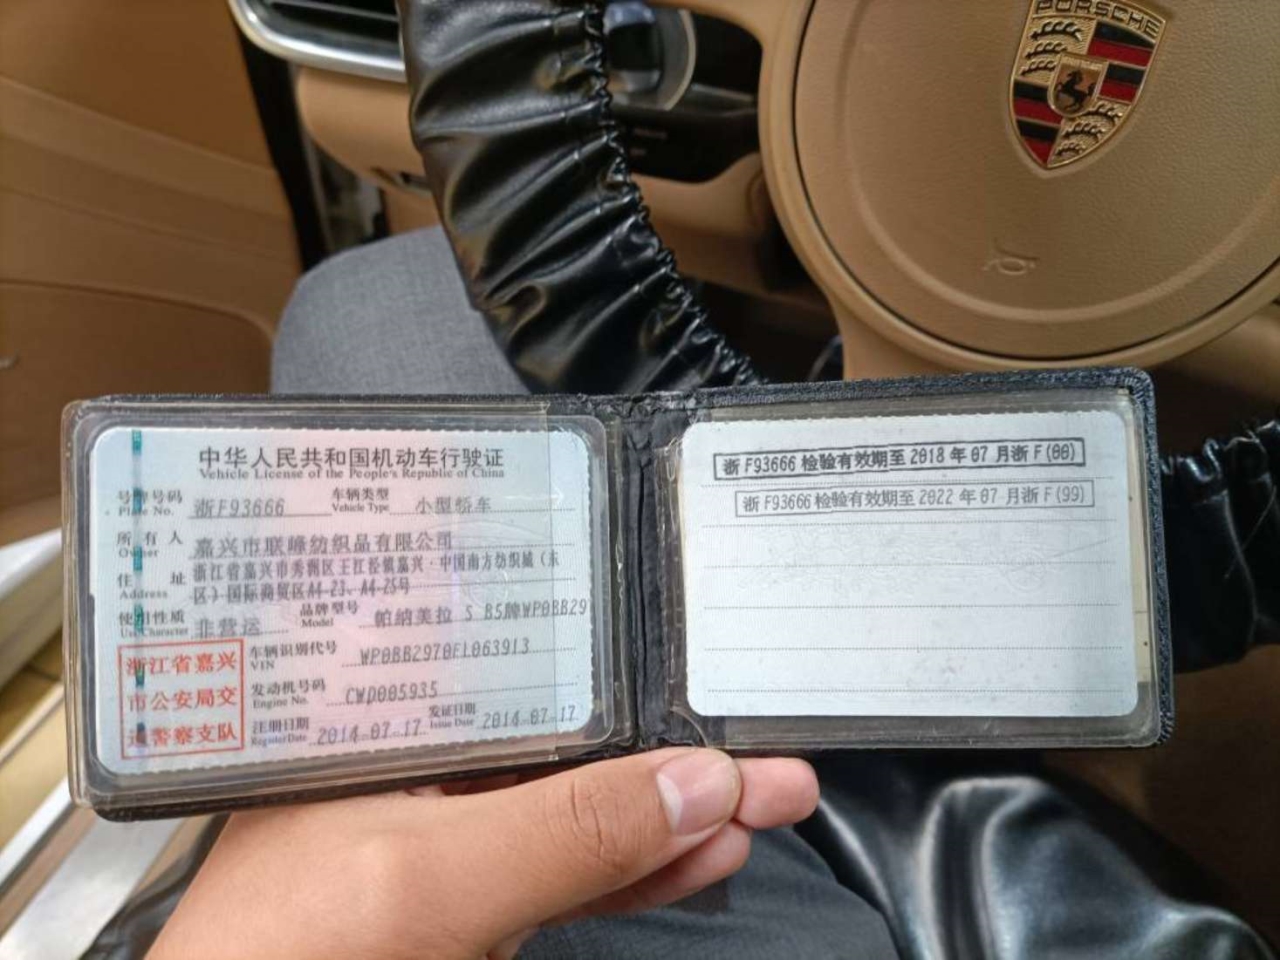 PORSCHE
中华人民共和国机动车行驶证
Vehicle License of the People's Republic of China
号牌号码 浙F93666 车辆类型 小型轿车
Plate No. Vehicle Type
所有人 嘉兴市联峰纺织品有限公司
Owner
住址 浙江省嘉兴市秀洲区王江泾镇嘉兴·中国南方纺织城（东
Address 区）国际商贸区A4-23、A4-25号
使用性质 非营运 品牌型号 帕纳美拉 S B5牌WP0BB29
Use Character Model
浙江省嘉兴
市公安局交
通警察支队
车辆识别代号 WP0BB2970EL063913
VIN
发动机号码 CWD005935
Engine No.
注册日期 2014-07-17 发证日期 2014-07-17
Register Date Issue Date
浙F93666检验有效期至2018年07月浙F(00)
浙F93666检验有效期至2022年07月浙F(99)